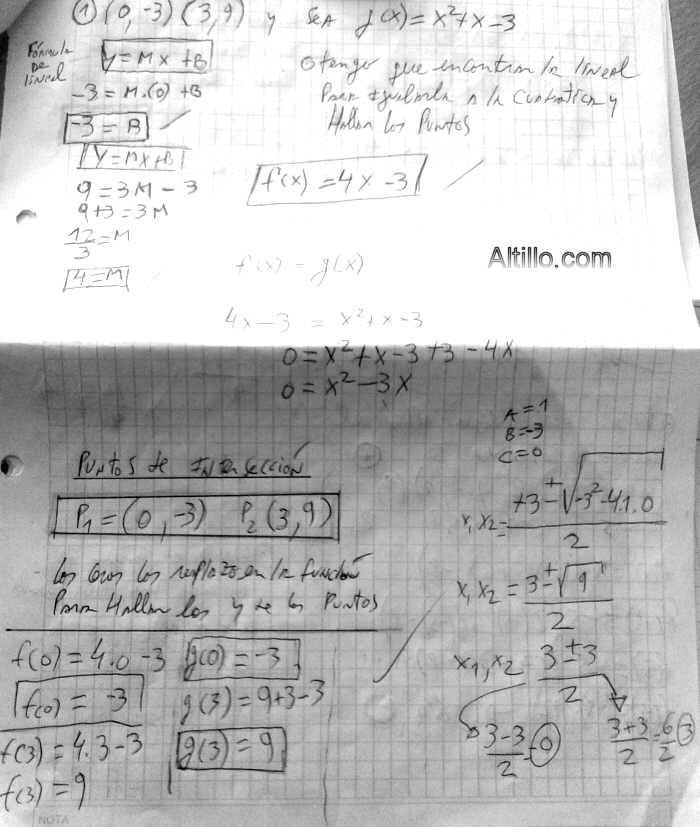 ① (0,-3) (3,9) y SEA g(x) = x²+x-3
Fórmula
De
lineal
y = Mx + B
-3 = M.(0) + B
-3 = B
Y = Mx + B
9 = 3M - 3
9+3 = 3M
12/3 = M
4 = M
tengo que encontrar la lineal
Para igualarla a la Cuadrática y
Hallar los Puntos
f(x) = 4x - 3
Altillo.com
f(x) = g(x)
4x-3 = x²+x-3
0 = x²+x-3+3-4x
0 = x²-3x
A=1
B=-3
C=0
Puntos de Intersección
P₁ = (0,-3) P₂ (3,9)
los reemplazo en la función
Para Hallar los y de los Puntos
x₁x₂ = +3±√-3²-4.1.0 / 2
x₁x₂ = 3±√9 / 2
x₁,x₂ 3±3 / 2
3-3/2 = 0
3+3/2 = 6/2 3
f(0) = 4.0-3
f(0) = -3
f(3) = 4.3-3
f(3) = 9
g(0) = -3
g(3) = 9+3-3
g(3) = 9
NOTA